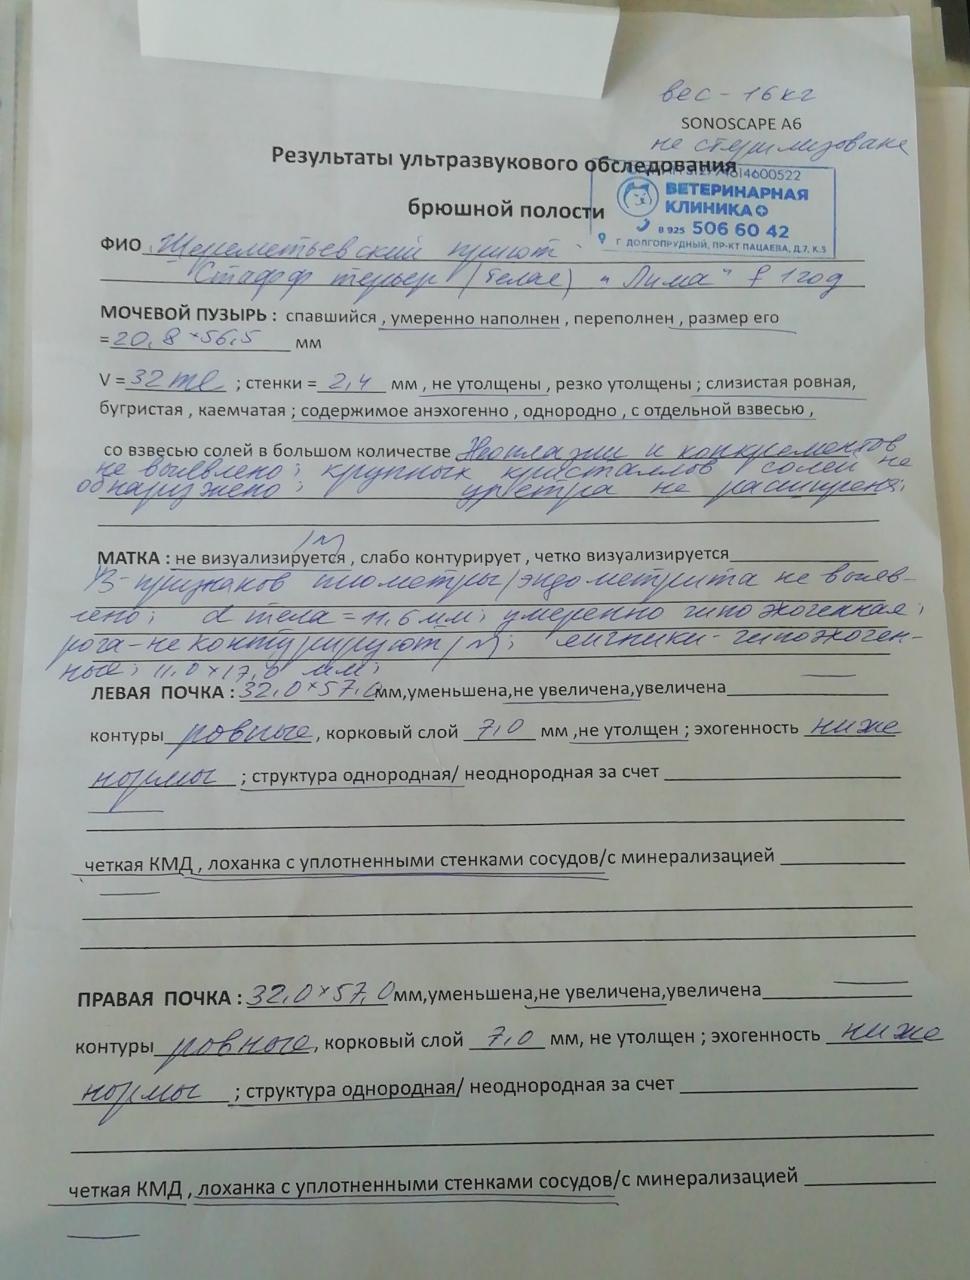 вес - 16 кг
SONOSCAPE A6
не стерилизована
Результаты ультразвукового обследования
брюшной полости
ВЕТЕРИНАРНАЯ
КЛИНИКА
8 925 506 60 42
Г ДОЛГОПРУДНЫЙ, ПР-КТ ПАЦАЕВА, Д.7, К.5
ФИО Шереметьевский приют
Стафф терьер (белая) "Лима" f 1 год
МОЧЕВОЙ ПУЗЫРЬ : спавшийся , умеренно наполнен , переполнен , размер его
= 20,8 × 56,5 мм
V = 32 ml ; стенки = 2,4 мм , не утолщены , резко утолщены ; слизистая ровная,
бугристая , каемчатая ; содержимое анэхогенно , однородно , с отдельной взвесью ,
со взвесью солей в большом количестве Неоплазии и конкрементов
не выявлено; крупных кристаллов солей не
обнаружено; уретра не расширена;
МАТКА : не визуализируется , слабо контурирует , четко визуализируется
В-признаков пиометры/эндометрита не выяв-
лено; d тела = 11,6 мм; умеренно гипоэхогенная;
рога - не контурируют /N; яичники - гипоэхоген-
ные; мм;
ЛЕВАЯ ПОЧКА : 32,0 × 57,0 мм,уменьшена,не увеличена,увеличена
контуры ровные , корковый слой 7,0 мм ,не утолщен ; эхогенность ниже
нормы ; структура однородная/ неоднородная за счет
четкая КМД , лоханка с уплотненными стенками сосудов/с минерализацией
ПРАВАЯ ПОЧКА : 32,0 × 57,0 мм,уменьшена,не увеличена,увеличена
контуры ровные , корковый слой 7,0 мм, не утолщен ; эхогенность ниже
нормы ; структура однородная/ неоднородная за счет
четкая КМД , лоханка с уплотненными стенками сосудов/с минерализацией